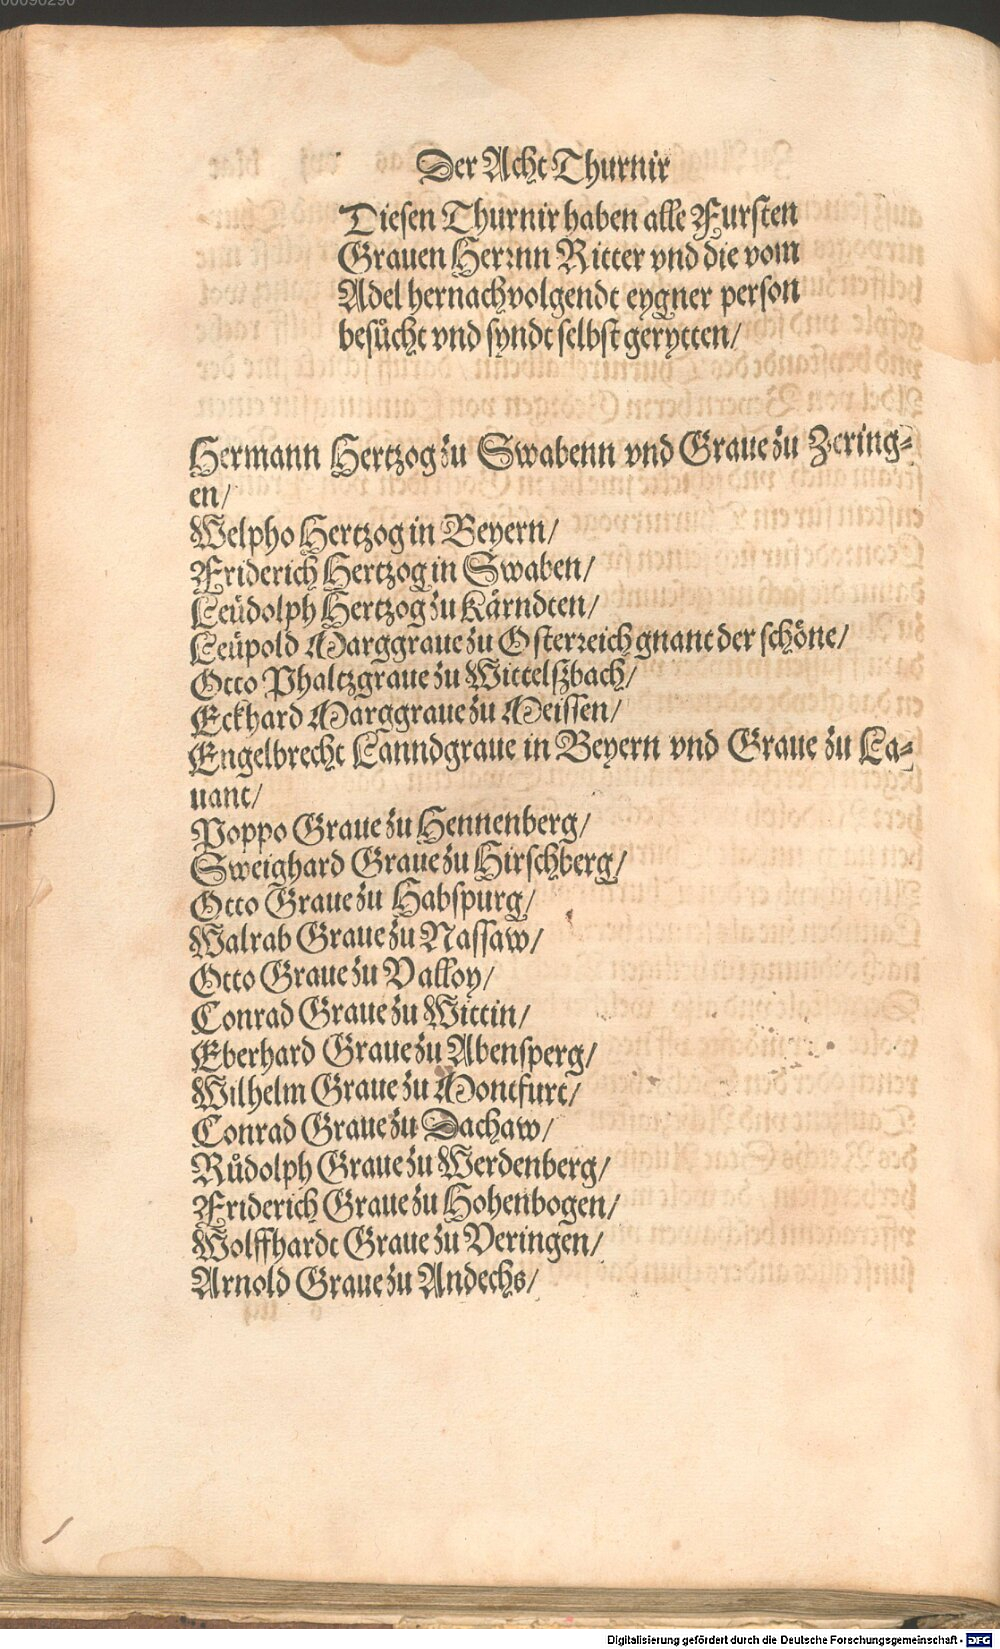 00090290
Der Acht Thurnir
Diesen Thurnir haben alle Fursten
Grauen Herrnn Ritter vnd die vom
Adel hernachuolgendt eygner person
besůcht vnd syndt selbst gerytten/
Hermann Hertzog zu Swabenn vnd Graue zu Zering-
en/
Welpho Hertzog in Beyern/
Friderich Hertzog in Swaben/
Leüdolph Hertzog zu Kärndten/
Leüpold Marggraue zu Osterreich gnant der schöne/
Otto Phaltzgraue zu Wittelßbach/
Eckhard Marggraue zu Meissen/
Engelbrecht Lanndgraue in Beyern vnd Graue zu La-
uant/
Poppo Graue zu Hennenberg/
Sweighard Graue zu Hirschberg/
Otto Graue zu Habspurg/
Walrab Graue zu Nassaw/
Otto Graue zu Valloy/
Conrad Graue zu Wittin/
Eberhard Graue zu Abensperg/
Wilhelm Graue zu Montfurt/
Conrad Graue zu Dachaw/
Růdolph Graue zu Werdenberg/
Friderich Graue zu Hohenbogen/
Wolffhardt Graue zu Veringen/
Arnold Graue zu Andechs/
Digitalisierung gefördert durch die Deutsche Forschungsgemeinschaft - DFG